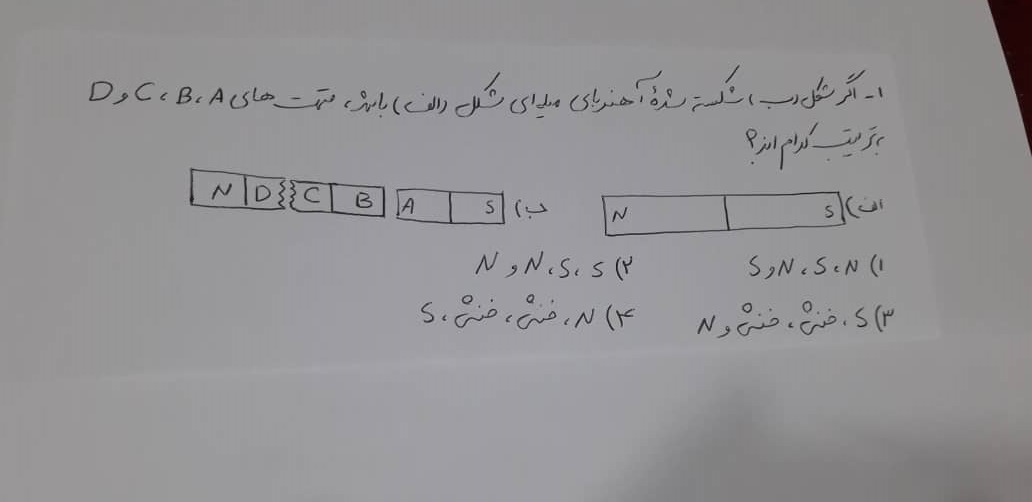 ۱- اگر شکل (ب) شکسته شدهٔ آهنربای میله‌ای شکل (الف) باشد، قسمت های A، B، C و D
بترتیب کدام اند؟
الف) N S
ب) N D C B A S
۱) N، S، N و S
۲) S، S، N و N
۳) S، خنثی، خنثی و N
۴) N، خنثی، خنثی، S